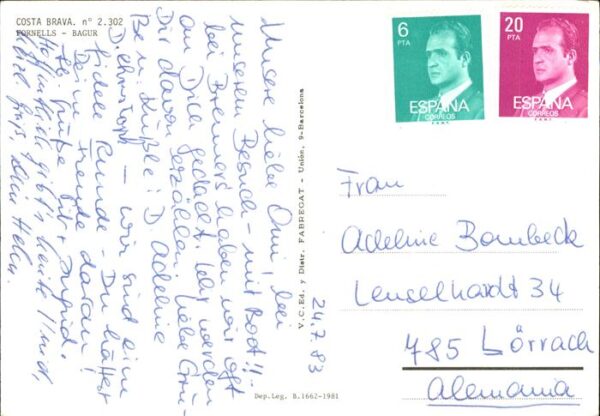 COSTA BRAVA. nº 2.302
FORNELLS - BAGUR
Unsere liebe Omi, bei
unserem Besuch - mit Boot!!
bei Bremers haben wir oft
an Dich gedacht. Wir werden
Dir davon erzählen. Liebe Grü-
Be u. Küßle! D Adeline
D. Christoph - wir sind eine
fidele Runde - Du hättest
Deine Freude daran!
Grüße
Hoffentlich gibt's heute
V.C.Ed. y Distr. FABREGAT - Unión, 9-Barcelona
Dep.Leg. B.1662-1981
6
PTA
ESPAÑA
CORREOS
20
PTA
ESPAÑA
CORREOS
24.7.83
Frau
Adeline Bombeck
Lenselhardt 34
785 Lörrach
Alemania